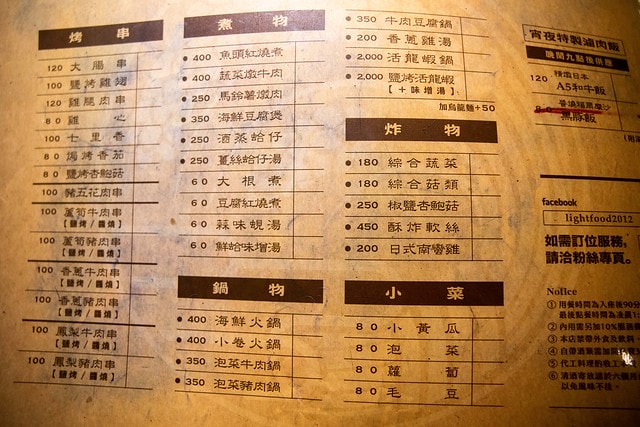 烤 串
120 大腸串
100 鹽烤雞翅
120 雞腿肉串
80 雞心
100 七里香
80 焗烤香茄
80 鹽烤杏鮑菇
100 豬五花肉串
100 蘆筍牛肉串
【鹽烤/醬燒】
100 蘆筍豬肉串
【鹽烤/醬燒】
100 香蔥牛肉串
【鹽烤/醬燒】
100 香蔥豬肉串
【鹽烤/醬燒】
100 鳳梨牛肉串
【鹽烤/醬燒】
100 鳳梨豬肉串
【鹽烤/醬燒】
煮 物
400 魚頭紅燒煮
400 蔬菜燉牛肉
250 馬鈴薯燉肉
350 海鮮豆腐煲
250 酒蒸蛤仔
250 薑絲蛤仔湯
60 大根煮
60 豆腐紅燒煮
60 蒜味蜆湯
60 鮮蛤味增湯
鍋 物
400 海鮮火鍋
400 小卷火鍋
350 泡菜牛肉鍋
350 泡菜豬肉鍋
350 牛肉豆腐鍋
200 香蔥雞湯
2,000 活龍蝦鍋
2,000 鹽烤活龍蝦
【+味增湯】
加烏龍麵+50
炸 物
180 綜合蔬菜
180 綜合菇類
250 椒鹽杏鮑菇
450 酥炸軟絲
200 日式南蠻雞
小 菜
80 小黃瓜
80 泡菜
80 蘿蔔
80 毛豆
宵夜特製滷肉飯
晚間九點後供應
120 精燉日本
A5和牛飯
80
黑豚飯
facebook
lightfood2012
如需訂位服務,
請洽粉絲專頁。
Notice
① 用餐時間為入座後90分
最後點餐時間為凌晨1:
② 內用需另加10%服務
③ 本店禁帶外食及飲料
④ 自帶酒類需加
⑤ 代工料理酌收工
⑥
以免風味不佳。